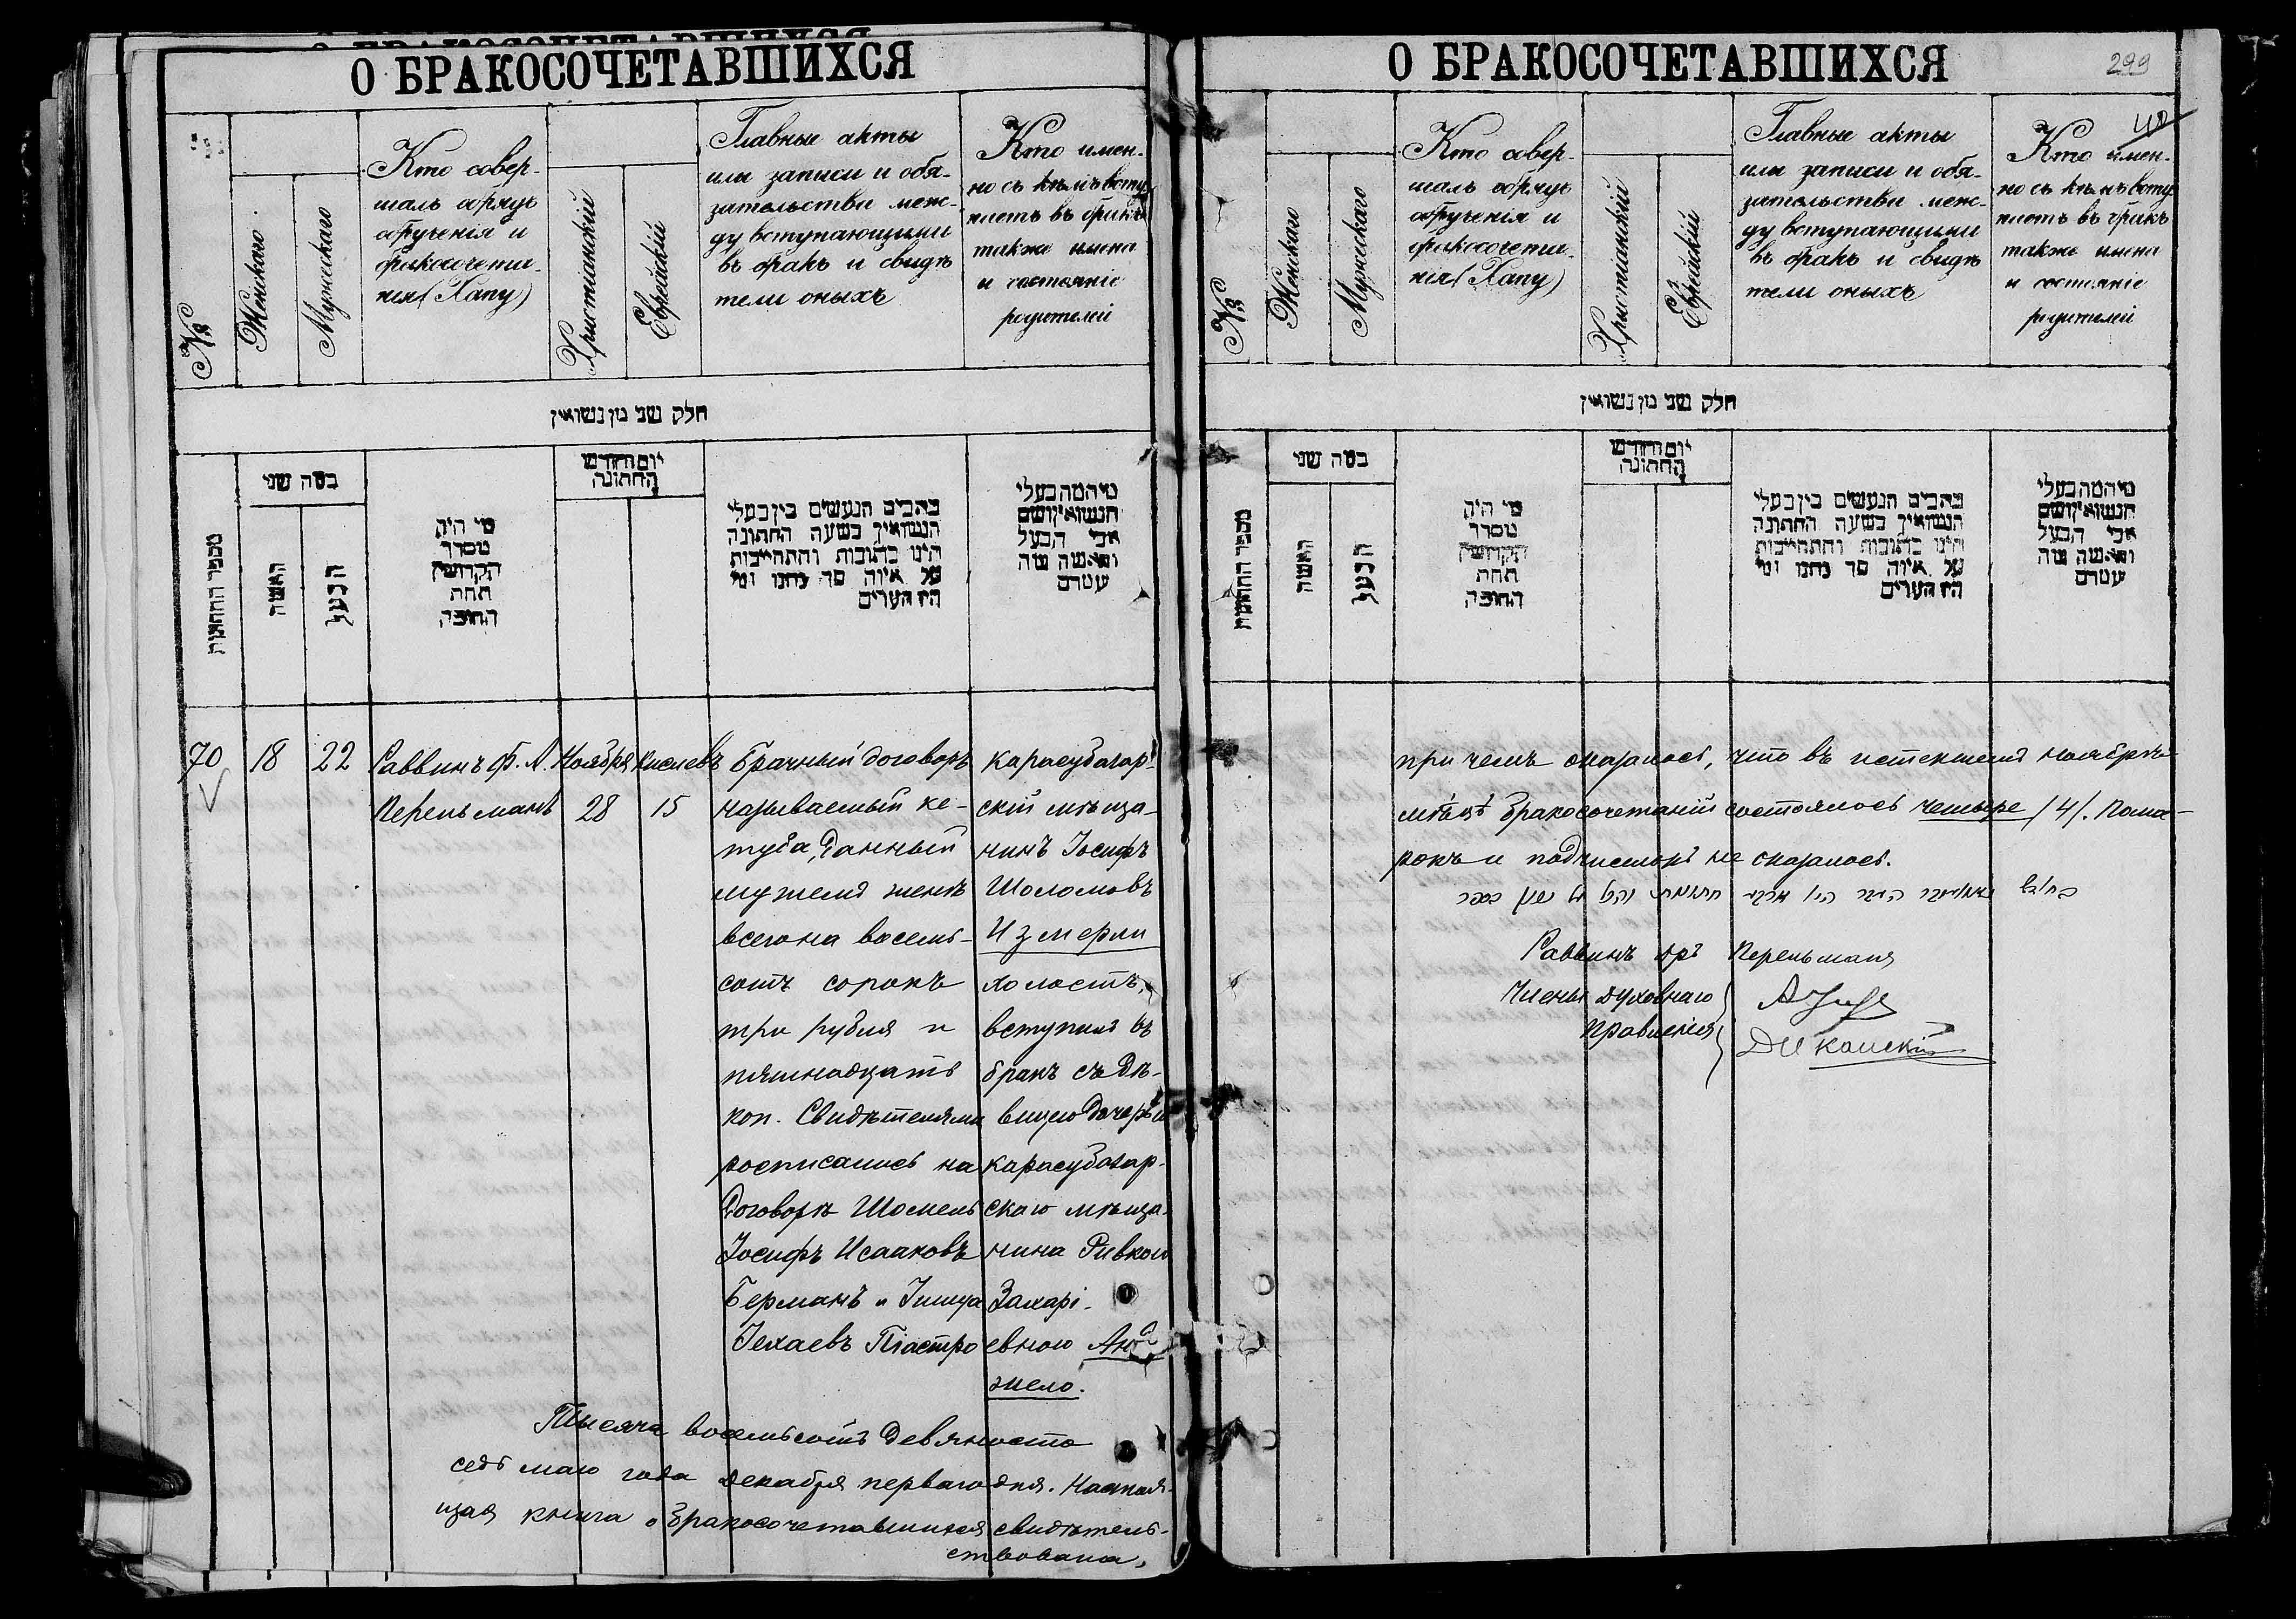 О БРАКОСОЧЕТАВШИХСЯ
№
Женскаго
Мужескаго
Кто совер-
шалъ обрядъ
обрученія и
бракосочета-
нія (Хапу)
Христіанскій
Еврейскій
Главные акты
или записи и обя-
зательства меж-
ду вступающими
въ бракъ и свидѣ
тели оныхъ
Кто имен-
но съ кѣмъ всту
паетъ въ бракъ
также имена
и состояніе
родителей
חלק שני מן נשואין
מספר החתונות
כמה שני
האשה
הבעל
מי היה
מסדר
הקדושין
תחת
החופה
יום וחודש
החתונה
כתבים הנעשים בין בעלי
הנשואין בשעה החתונה
היינו כתובות והתחייבות
על איזה סך נתנו ומי
היו העדים
מי המה בעלי
הנשואין ושם
אבי הבעל
והאשה מה
עטרם
70 18 22
Раввинъ Ф. Л.
Перельманъ
Ноября
28
Кислевъ
15
Брачный договоръ
называемый ке-
туба, данный
мужемъ женѣ
всего на восемь-
сотъ сорокъ
три рубля и
пятнадцать
коп. Свидѣтелями
росписались на
договорѣ Шомель
Іосифъ Исааковъ
Берманъ и Іишуа
Іехаевъ Піастро
карасубазар-
скій мѣща-
нинъ Іосифъ
Шоломовъ
Измерли
холостъ,
вступилъ въ
бракъ съ дѣ-
вицею дочерью
карасубазар-
скаго мѣща-
нина Ривкою
Захарі-
евною Анд
жело.
Тысяча восемьсотъ девяносто
седьмаго года декабря перваго дня. Настоя-
щая книга о бракосочетавшихся свидѣтель-
ствована,
О БРАКОСОЧЕТАВШИХСЯ
299
№
Женскаго
Мужескаго
Кто совер-
шалъ обрядъ
обрученія и
бракосочета-
нія (Хапу)
Христіанскій
Еврейскій
Главные акты
или записи и обя-
зательства меж-
ду вступающими
въ бракъ и свидѣ
тели оныхъ
Кто имен-
но съ кѣмъ всту
паетъ въ бракъ
также имена
и состояніе
родителей
חלק שני מן נשואין
מספר החתונות
כמה שני
האשה
הבעל
מי היה
מסדר
הקדושין
תחת
החופה
יום וחודש
החתונה
כתבים הנעשים בין בעלי
הנשואין בשעה החתונה
היינו כתובות והתחייבות
על איזה סך נתנו ומי
היו העדים
מי המה בעלי
הנשואין ושם
אבי הבעל
והאשה מה
עטרם
при чемъ оказалось, что въ истекшемъ ноябрѣ
мѣцѣ бракосочетаній состоялось четыре /4/. Пома-
рокъ и подчистокъ не оказалось.
Раввинъ Перельманъ
Члены духовнаго
Правленія